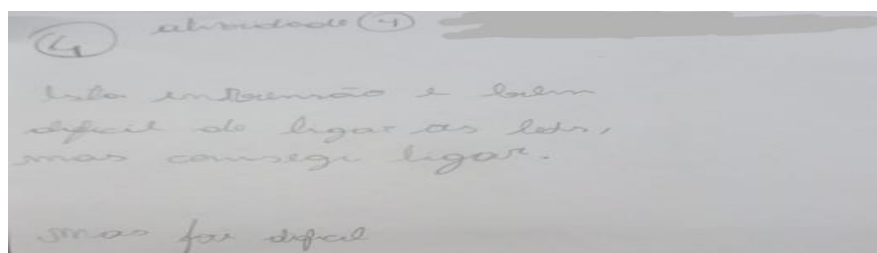 4 atividade 4
Esta instrução e bem
dificil de ligar os leds,
mas consegi ligar.
mas foi dificil